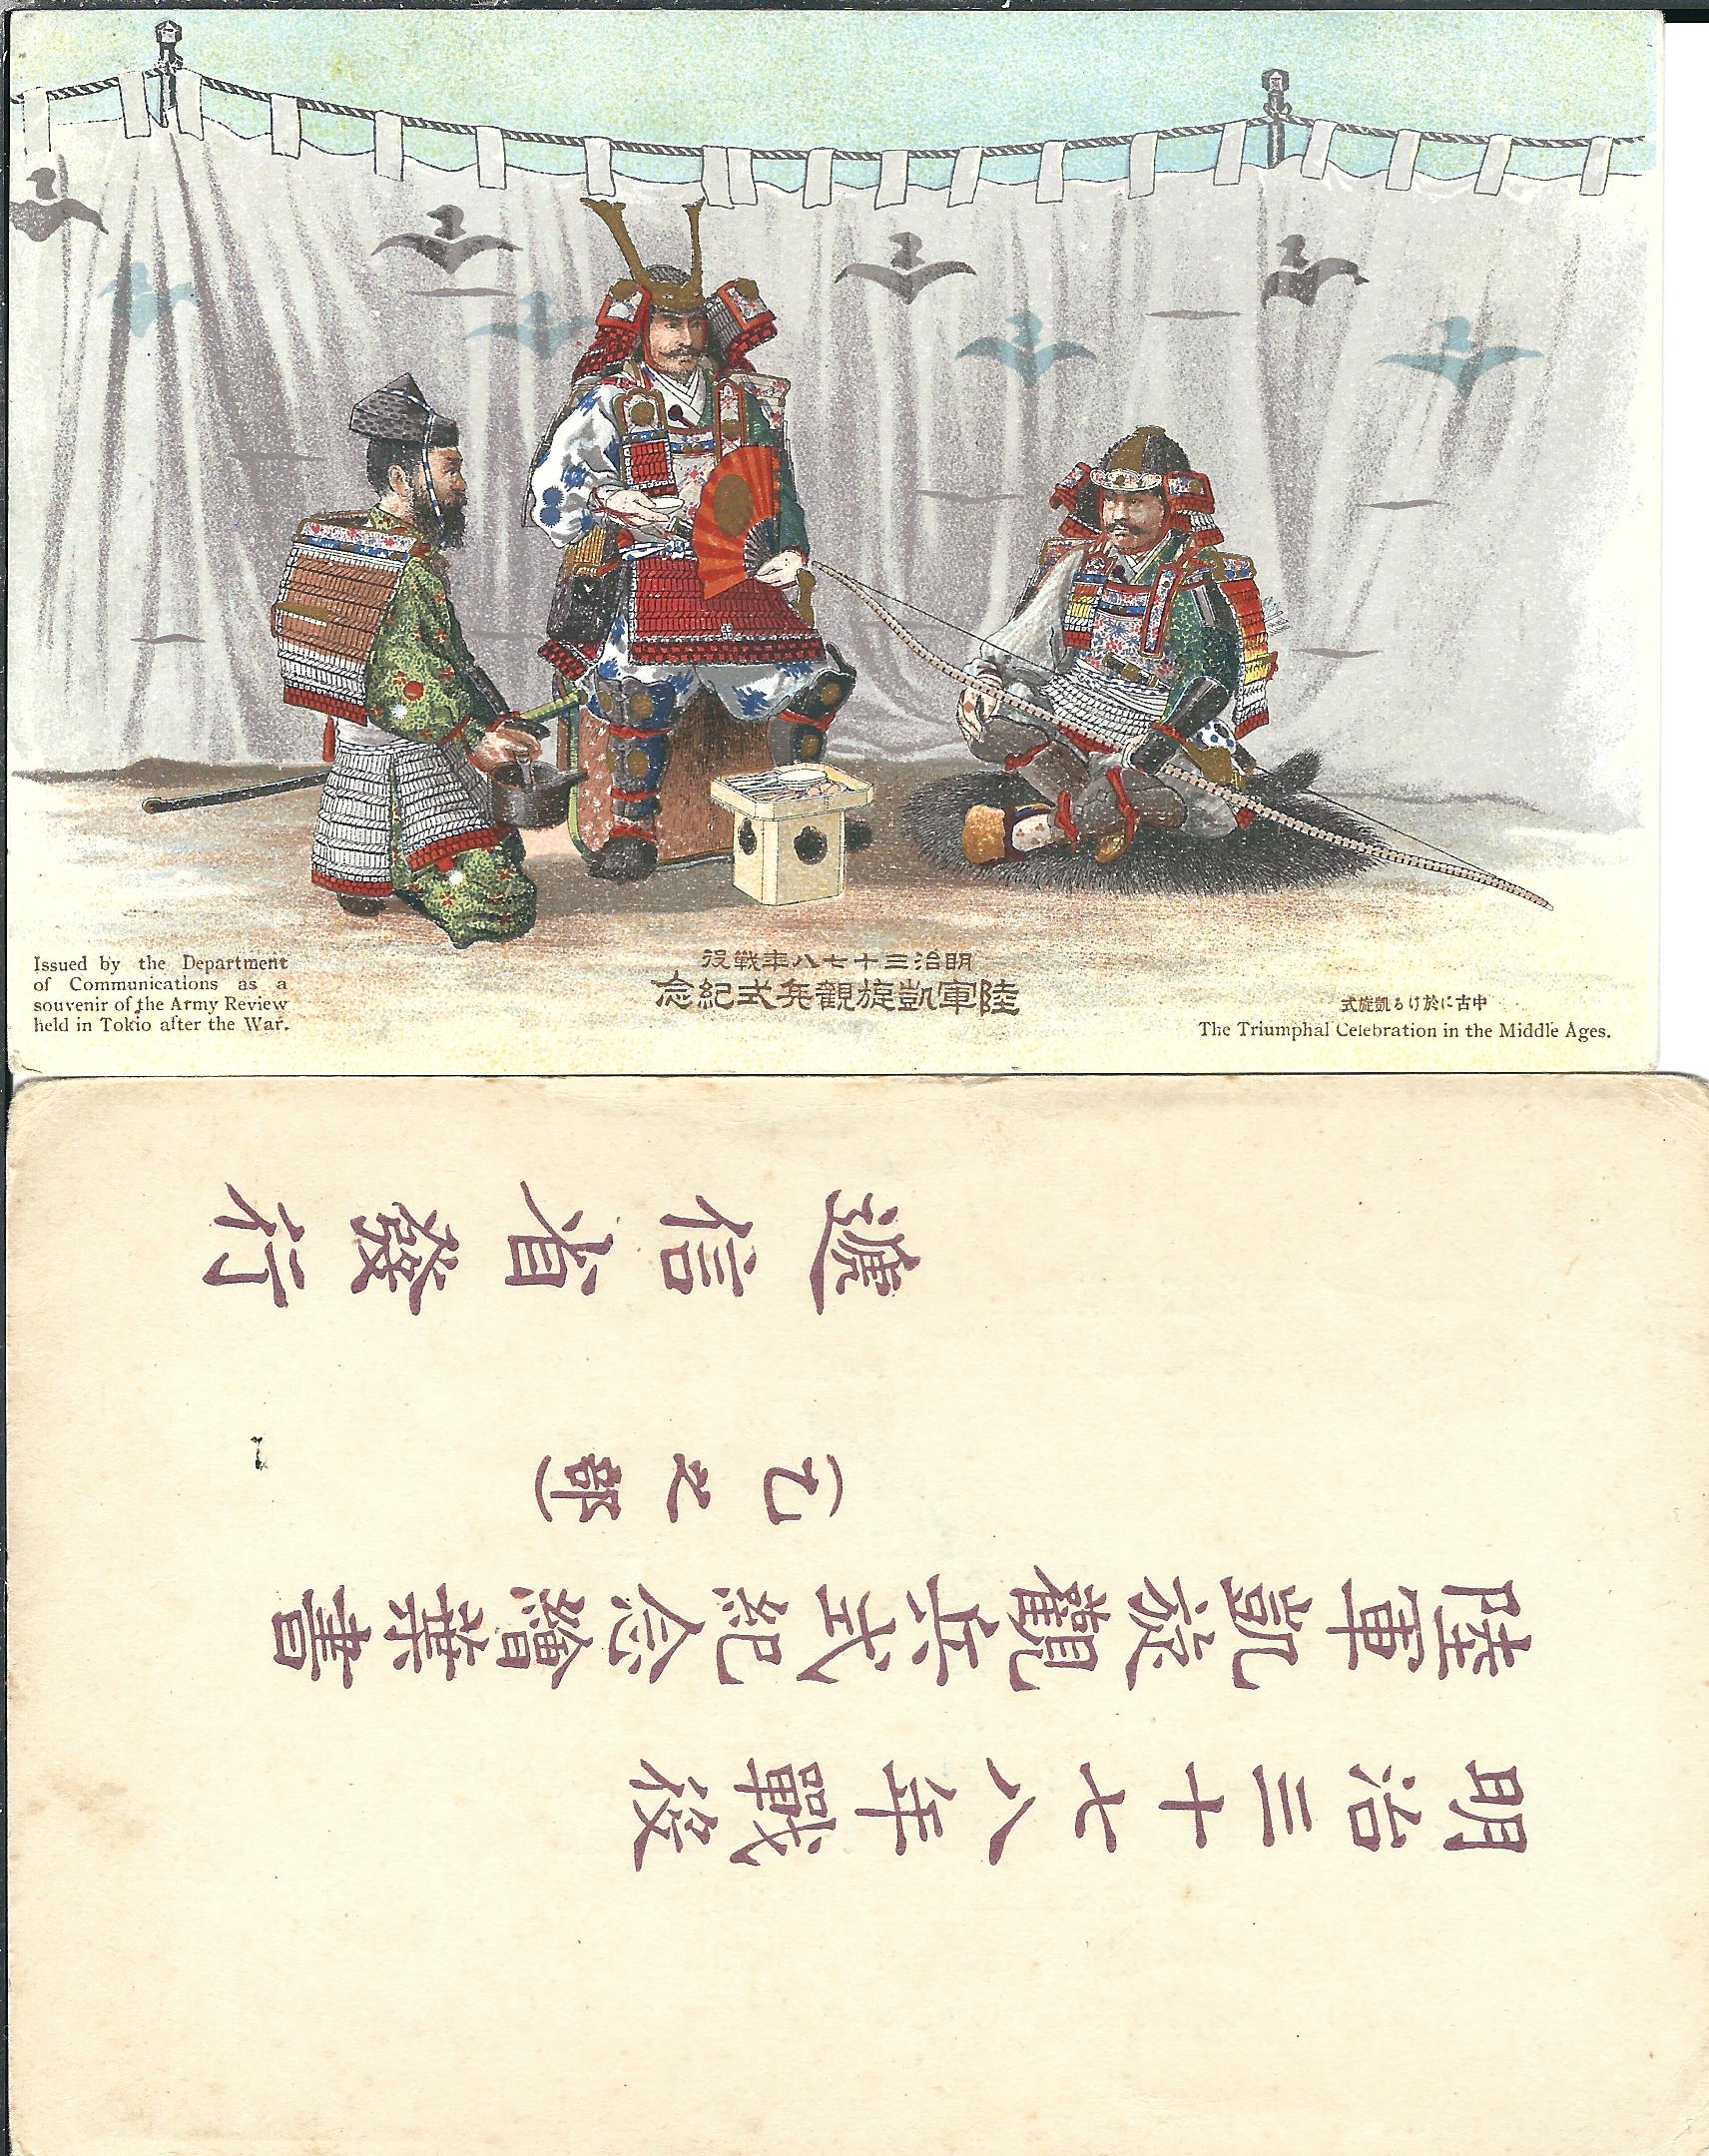 Issued by the Department
of Communications as a
souvenir of the Army Review
held in Tokio after the War.
明治三十七八年戰役
陸軍凱旋觀兵式紀念
中古に於ける凱旋式
The Triumphal Celebration in the Middle Ages.
明治三十七八年戰役
陸軍凱旋觀兵式紀念繪葉書
(乙之部)
遞信省發行